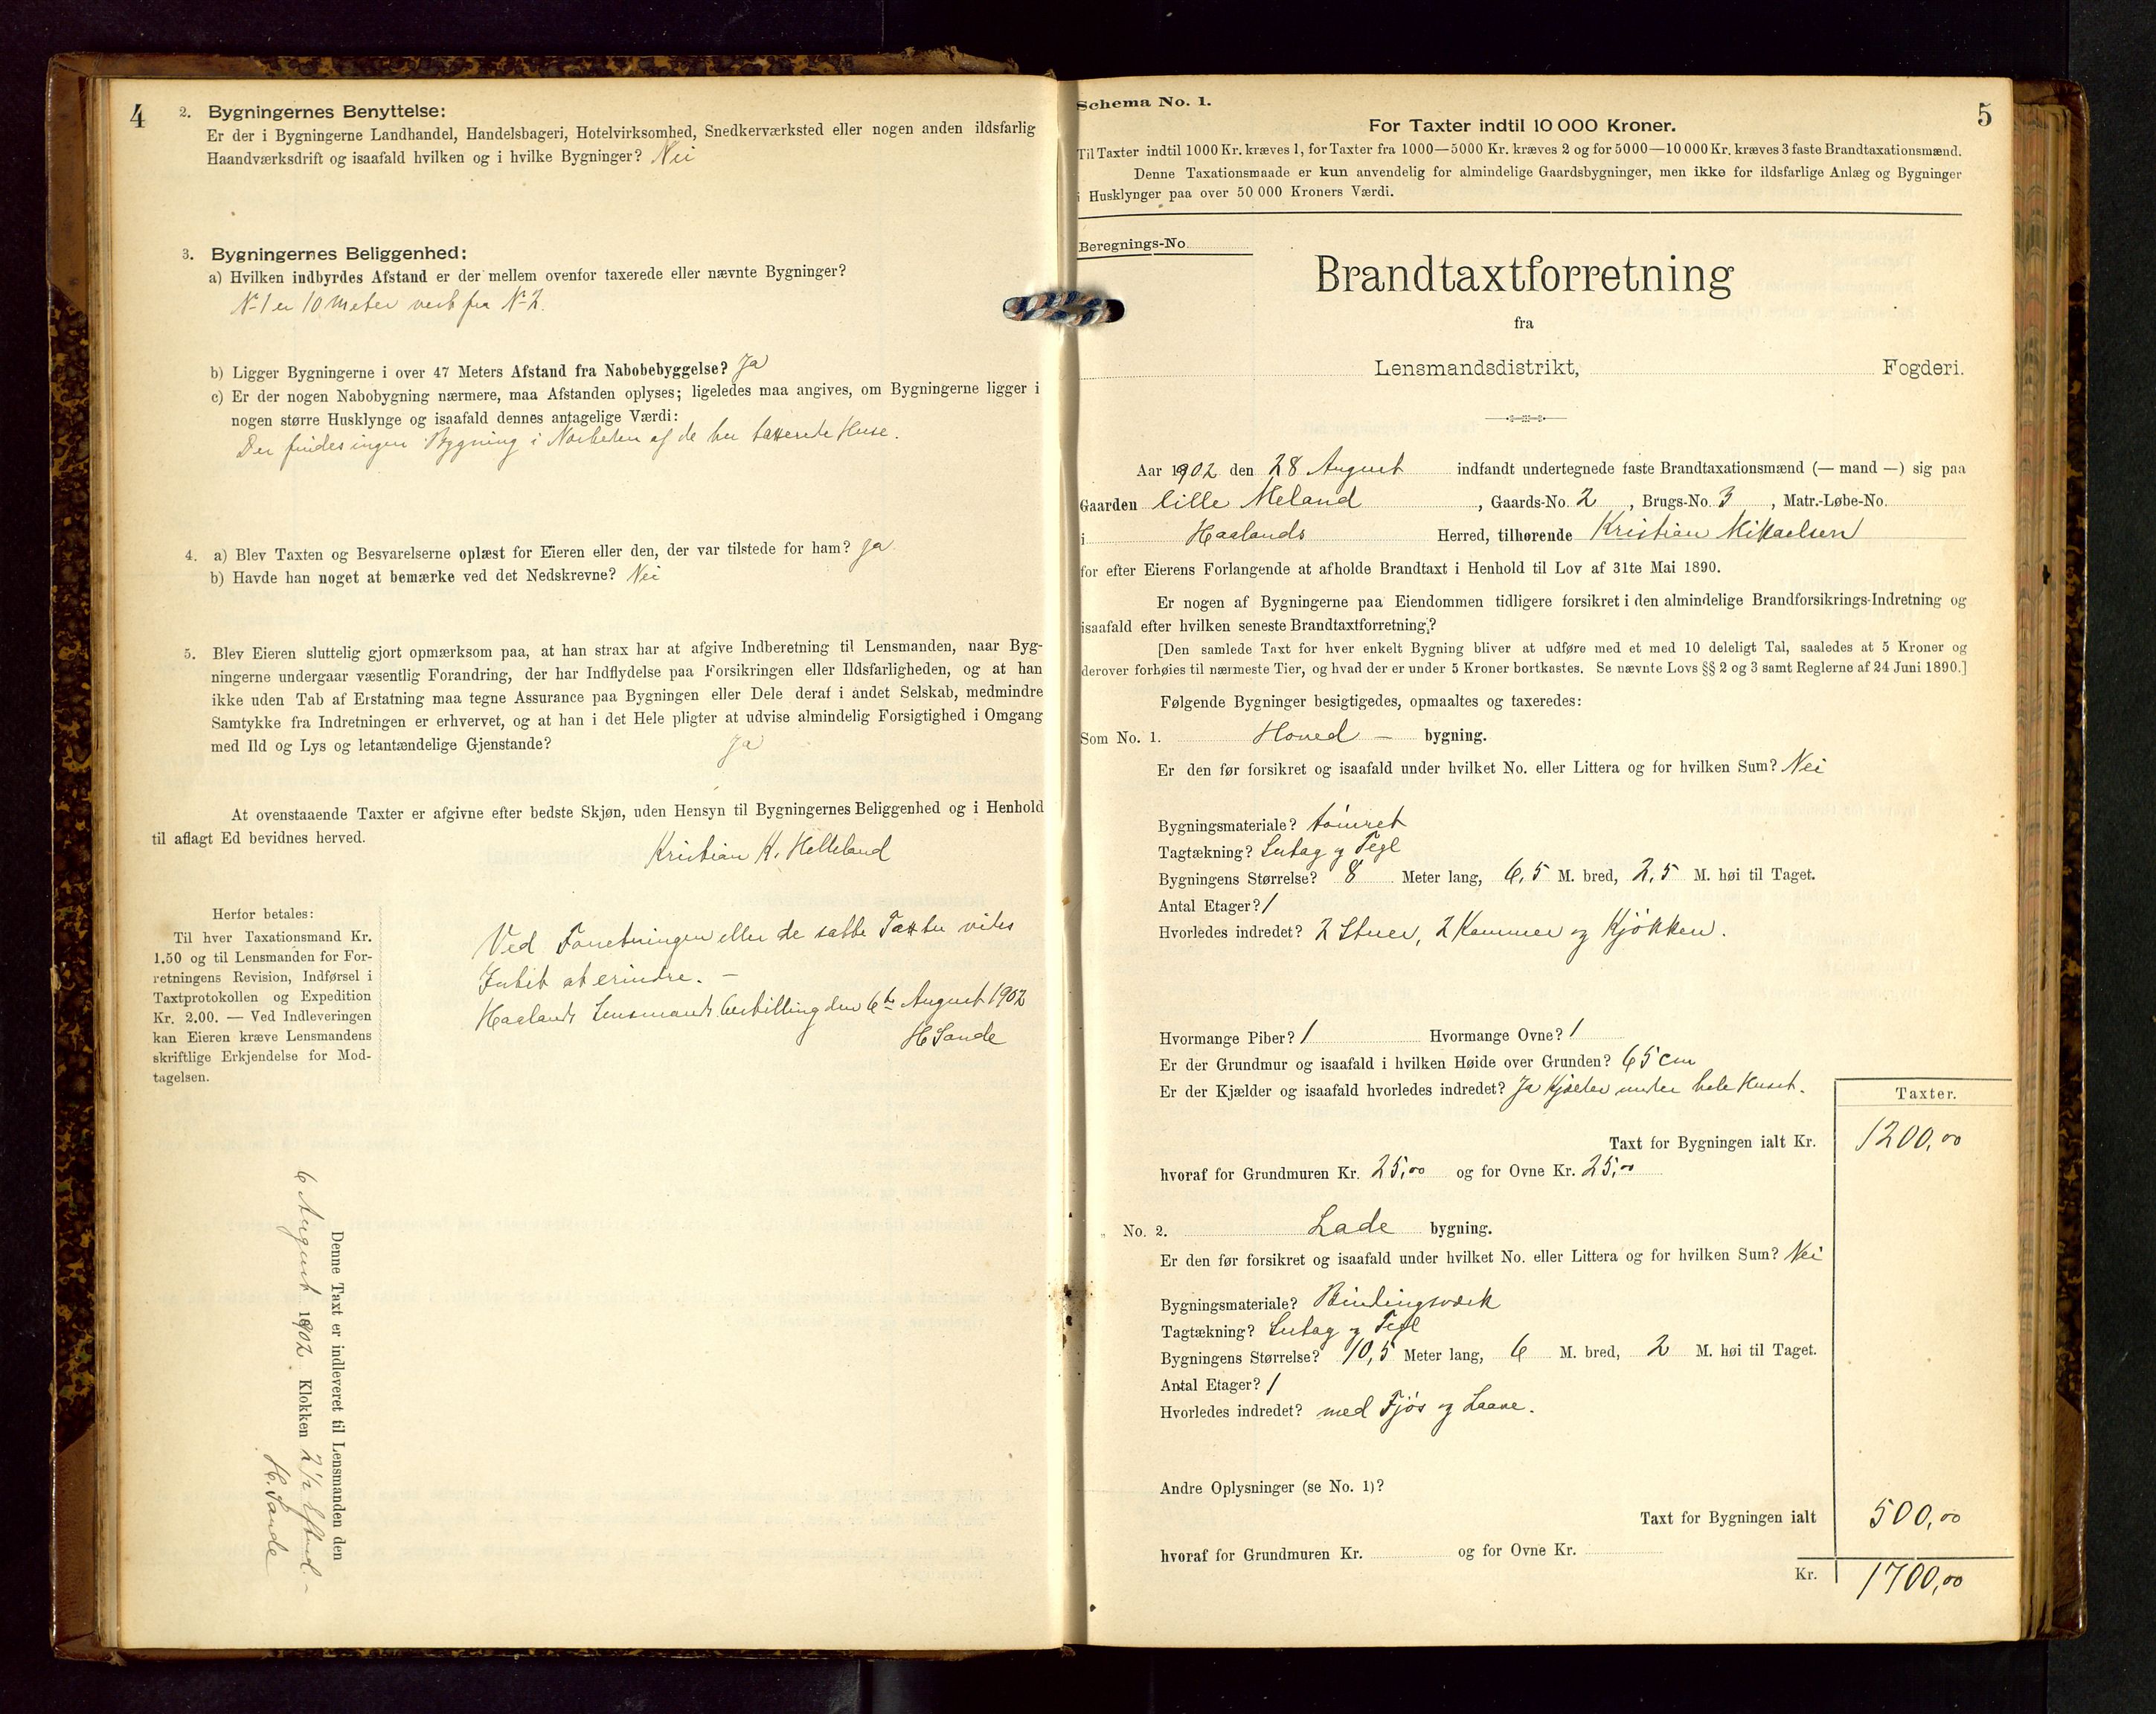 4
2. Bygningernes Benyttelse:
Er der i Bygningerne Landhandel, Handelsbageri, Hotelvirksomhed, Snedkerværksted eller nogen anden ildsfarlig
Haandværksdrift og isaafald hvilken og i hvilke Bygninger? Nei
3. Bygningernes Beliggenhed:
a) Hvilken indbyrdes Afstand er der mellem ovenfor taxerede eller nævnte Bygninger?
No 1 er 10 Meter vest fra No 2.
b) Ligger Bygningerne i over 47 Meters Afstand fra Nabobebyggelse? Ja
c) Er der nogen Nabobygning nærmere, maa Afstanden oplyses; ligeledes maa angives, om Bygningerne ligger i
nogen større Husklynge og isaafald dennes antagelige Værdi:
Der findes ingen Bygning i Nærheden af de her taxerede Huse.
4. a) Blev Taxten og Besvarelserne oplæst for Eieren eller den, der var tilstede for ham? Ja
b) Havde han noget at bemærke ved det Nedskrevne? Nei
5. Blev Eieren sluttelig gjort opmærksom paa, at han strax har at afgive Indberetning til Lensmanden, naar Byg-
ningerne undergaar væsentlig Forandring, der har Indflydelse paa Forsikringen eller Ildsfarligheden, og at han
ikke uden Tab af Erstatning maa tegne Assurance paa Bygningen eller Dele deraf i andet Selskab, medmindre
Samtykke fra Indretningen er erhvervet, og at han i det Hele pligter at udvise almindelig Forsigtighed i Omgang
med Ild og Lys og letantændelige Gjenstande? Ja
At ovenstaaende Taxter er afgivne efter bedste Skjøn, uden Hensyn til Bygningernes Beliggenhed og i Henhold
til aflagt Ed bevidnes herved.
Kristian K. Helleland
Herfor betales:
Til hver Taxationsmand Kr.
1.50 og til Lensmanden for For-
retningens Revision, Indførsel i
Taxtprotokollen og Expedition
Kr. 2.00. — Ved Indleveringen
kan Eieren kræve Lensmandens
skriftlige Erkjendelse for Mod-
tagelsen.
Ved Forretningen eller de satte Taxter vides
Intet at erindre. —
Haalands Lensmands bestilling den 6te August 1902
H Sande
Denne Taxt er indleveret til Lensmanden den
6 August 1902 Klokken 2 1/2 Eftmd. –
H. Sande
Schema No. 1.
5
For Taxter indtil 10 000 Kroner.
Til Taxter indtil 1000 Kr. kræves 1, for Taxter fra 1000—5000 Kr. kræves 2 og for 5000—10 000 Kr. kræves 3 faste Brandtaxationsmænd.
Denne Taxationsmaade er kun anvendelig for almindelige Gaardsbygninger, men ikke for ildsfarlige Anlæg og Bygninger
i Husklynger paa over 50 000 Kroners Værdi.
Beregnings-No.
Brandtaxtforretning
fra
Lensmandsdistrikt, Fogderi.
Aar 1902 den 28 August indfandt undertegnede faste Brandtaxationsmænd (— mand —) sig paa
Gaarden lille Meland, Gaards-No. 2, Brugs-No. 3, Matr.-Løbe-No.
i Haalands Herred, tilhørende Kristian Mikaelsen
for efter Eierens Forlangende at afholde Brandtaxt i Henhold til Lov af 31te Mai 1890.
Er nogen af Bygningerne paa Eiendommen tidligere forsikret i den almindelige Brandforsikrings-Indretning og
isaafald efter hvilken seneste Brandtaxtforretning?
[Den samlede Taxt for hver enkelt Bygning bliver at udføre med et med 10 deleligt Tal, saaledes at 5 Kroner og
derover forhøies til nærmeste Tier, og hvad der er under 5 Kroner bortkastes. Se nævnte Lovs §§ 2 og 3 samt Reglerne af 24 Juni 1890.]
Følgende Bygninger besigtigedes, opmaaltes og taxeredes:
Som No. 1. Hoved — bygning.
Er den før forsikret og isaafald under hvilket No. eller Littera og for hvilken Sum? Nei
Bygningsmateriale? tømret
Tagtækning? Sutag og Tegl
Bygningens Størrelse? 8 Meter lang, 6,5 M. bred, 2,5 M. høi til Taget.
Antal Etager? 1
Hvorledes indredet? 2 Stuer, 2 Kammer og Kjøkken.
Hvormange Piber? 1 Hvormange Ovne? 1
Er der Grundmur og isaafald i hvilken Høide over Grunden? 65 cm
Er der Kjælder og isaafald hvorledes indredet? Ja Kjælder under hele Huset.
Taxter.
Taxt for Bygningen ialt Kr. 1200,00
hvoraf for Grundmuren Kr. 25,00 og for Ovne Kr. 25,00
" No. 2. Lade bygning.
Er den før forsikret og isaafald under hvilket No. eller Littera og for hvilken Sum? Nei
Bygningsmateriale? Bindingsværk
Tagtækning? Sutag og Tegl
Bygningens Størrelse? 10,5 Meter lang, 6 M. bred, 2 M. høi til Taget.
Antal Etager? 1
Hvorledes indredet? med Fjøs og Laave.
Andre Oplysninger (se No. 1)?
Taxt for Bygningen ialt 500,00
hvoraf for Grundmuren Kr. og for Ovne Kr.
Kr. 1700,00